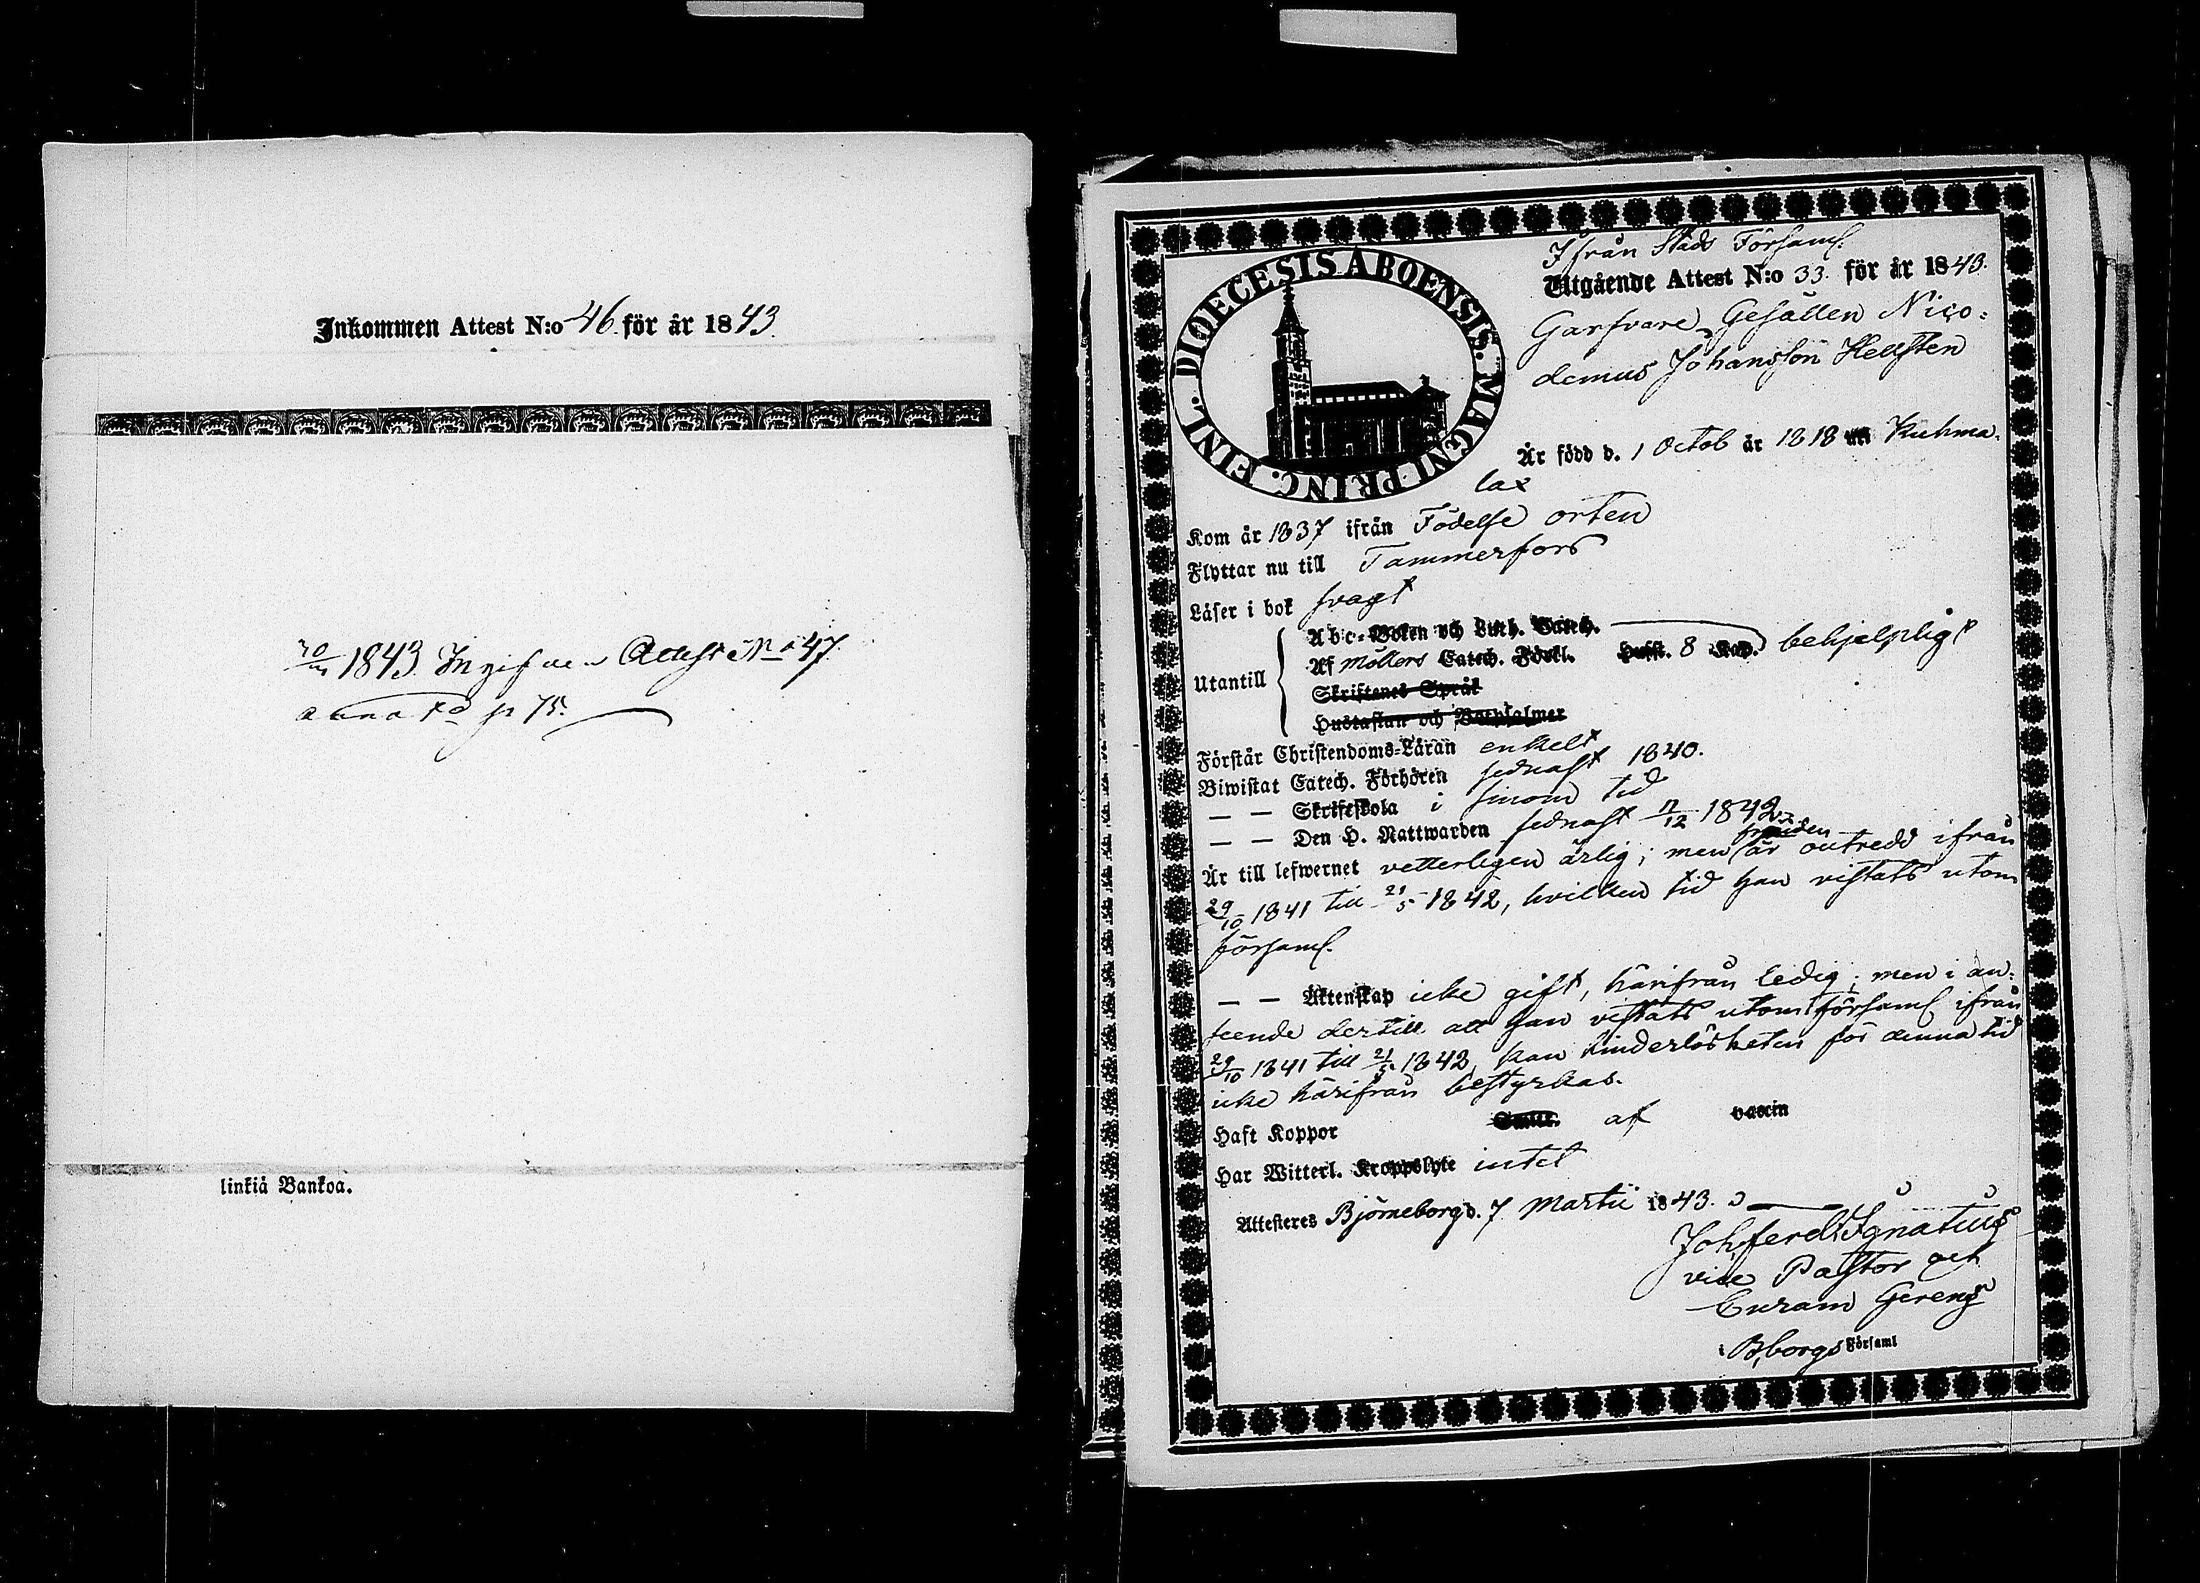 Inkommen Attest N:o 46. för år 1843.
1843. Ingifven Attest No 47.
p 75.
linkiä Bankoa.
DIOECESIS ABOENSIS. MAGNI PRINC. FINL.
Ifrån Stads Församl.
Utgående Attest N:o 33. för år 1843.
Garfvare Gesällen Nico=
demus Johansson Hellsten
Är född d. 1 Octob år 1818 Kuhma=
lax
Kom år 1837 ifrån Födelse orten
Flyttar nu till Tammerfors
Läser i bok svagt
Utantill
Abc-Boken och Luth. Catech.
Af Möllers Catech. Förkl. Hufst. 8 Kap. behjelpligt
Skriftenes Språk
Hustaflan och Botpsalmer
Förstår Christendoms-Läran enkelt
Biwistat Catech. Förhören sednast 1840.
— — Skriftskola i sinom tid
— — Den H. Nattwarden sednast 11/12 1842.
frejden
Är till lefwernet vetterligen ärlig; men är outredd ifrån
29/10 1841 till 21/5 1842, hvilken tid han vistats utom
församl.
— — Äktenskap icke gift, härifrån ledig; men i an=
seende dertill att han vistats utom församl ifrån
29/10 1841 till 21/5 1842, kan hinderlösheten för denna tid
icke härifrån bestyrkas.
Haft Koppor Smitt. af vaccin
Har Witterl. Kroppslyte intet
Attesteres Björneborg d. 7 Martii 1843.
Joh. Ferd. Ignatius
vice Pastor och
Curam Gerens
i B,borgs Församl